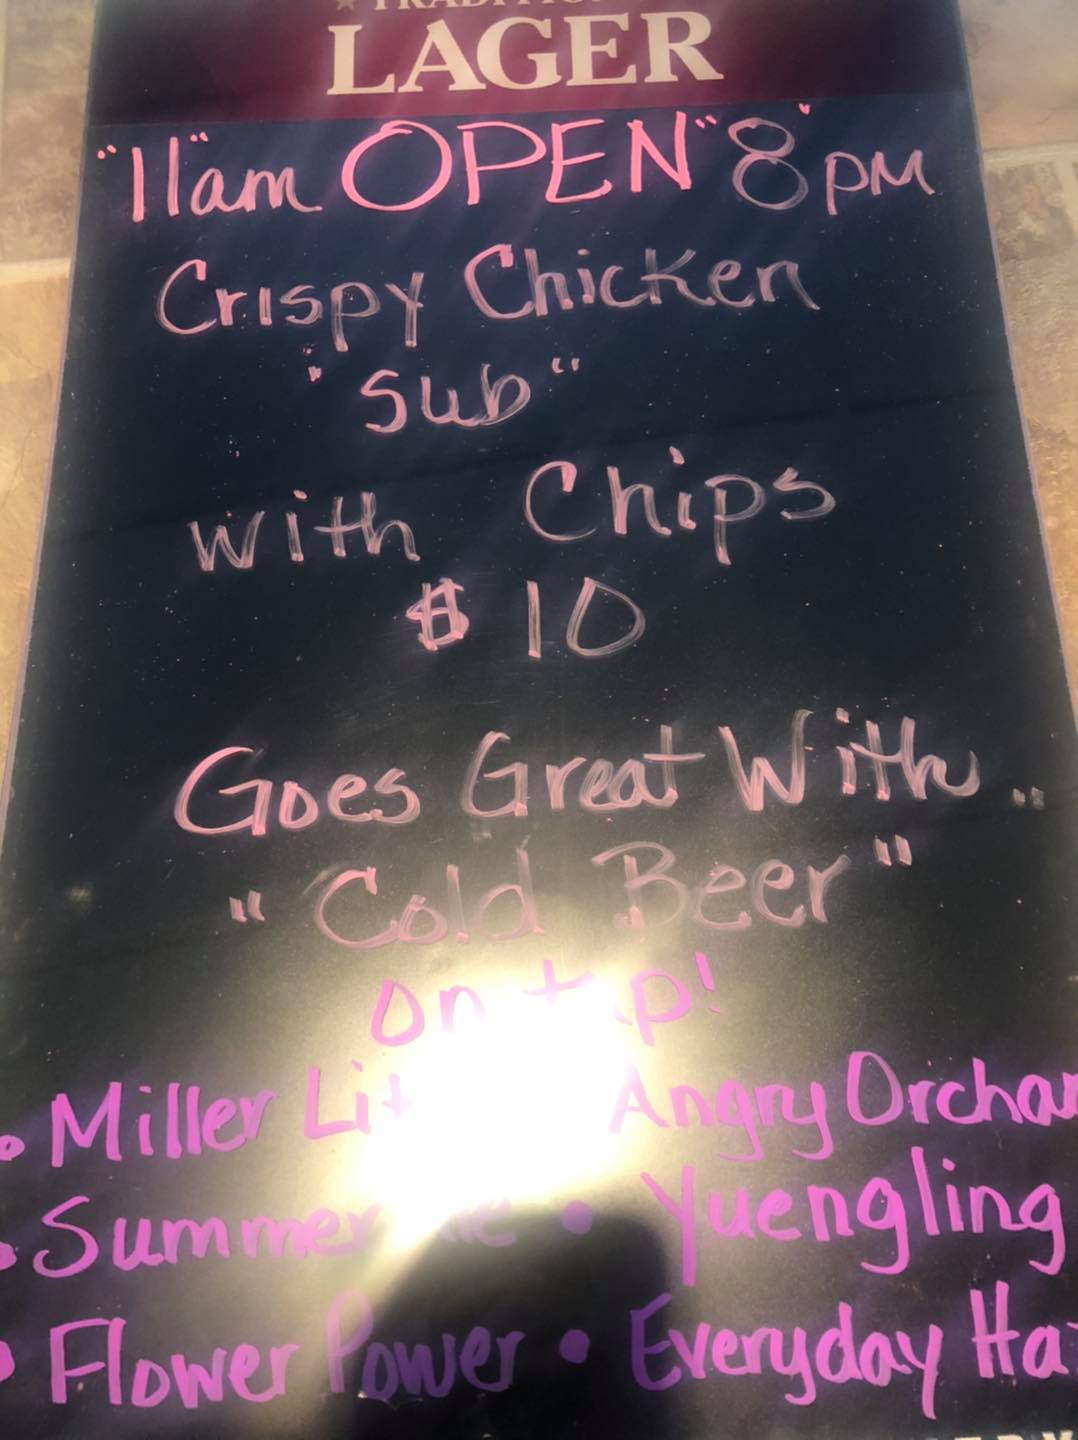 LAGER
"11"am OPEN "8" PM
Crispy Chicken
"Sub"
with Chips
$10
Goes Great With..
"Cold Beer"
on tap!
• Miller Lit • Angry Orchar
• Summer • Yuengling
• Flower Power • Everyday Ha